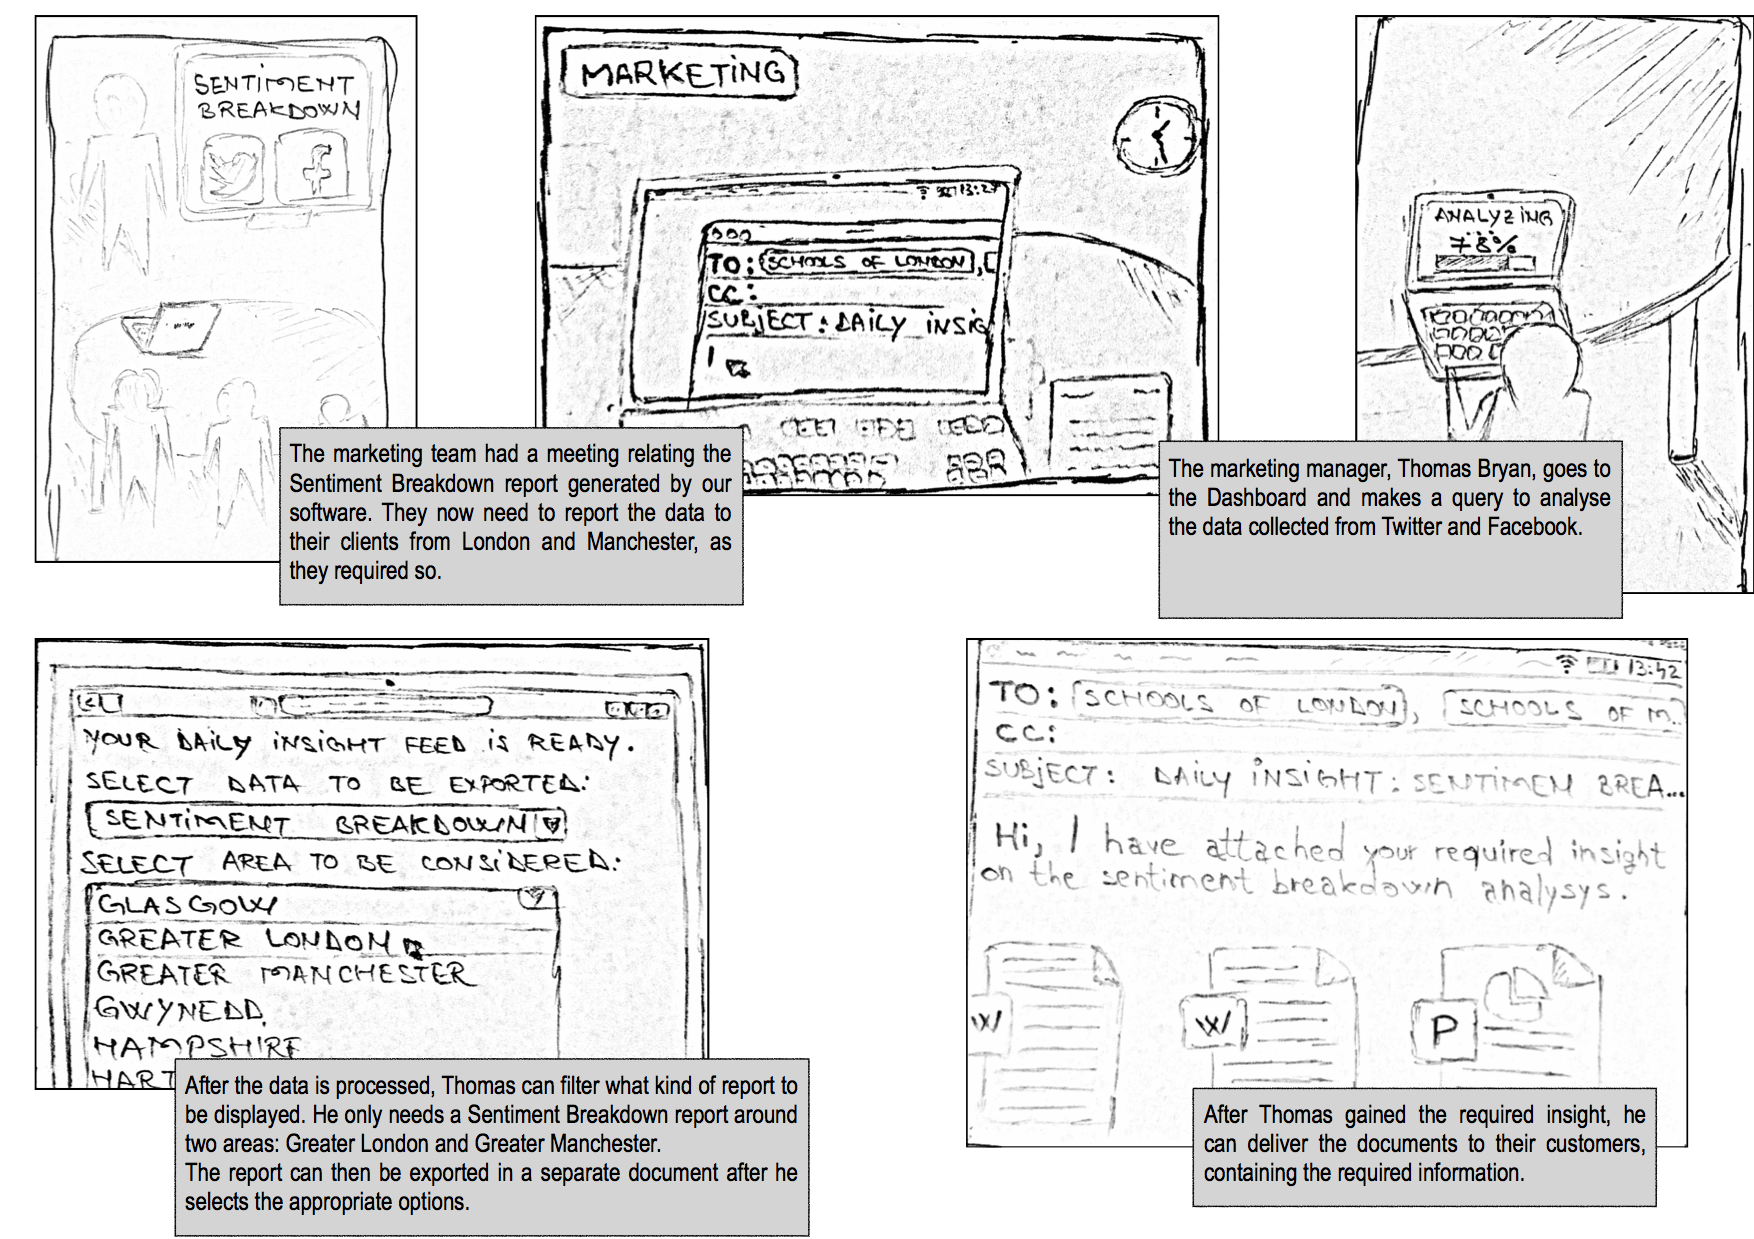 SENTIMENT
BREAKDOWN
f
The marketing team had a meeting relating the
Sentiment Breakdown report generated by our
software. They now need to report the data to
their clients from London and Manchester, as
they required so.
MARKETING
TO: SCHOOLS OF LONDON,
CC:
SUBJECT: DAILY INSIG
ANALYZING
...
78%
The marketing manager, Thomas Bryan, goes to
the Dashboard and makes a query to analyse
the data collected from Twitter and Facebook.
YOUR DAILY INSIGHT FEED IS READY.
SELECT DATA TO BE EXPORTED:
SENTIMENT BREAKDOWN
SELECT AREA TO BE CONSIDERED:
GLASGOW
GREATER LONDON
GREATER MANCHESTER
GWYNEDD
HAMPSHIRE
HART
After the data is processed, Thomas can filter what kind of report to
be displayed. He only needs a Sentiment Breakdown report around
two areas: Greater London and Greater Manchester.
The report can then be exported in a separate document after he
selects the appropriate options.
13:42
TO: SCHOOLS OF LONDON, SCHOOLS OF M..
CC:
SUBJECT: DAILY INSIGHT: SENTIMEN BREA...
Hi, I have attached your required insight
on the sentiment breakdown analysys.
W W P
After Thomas gained the required insight, he
can deliver the documents to their customers,
containing the required information.